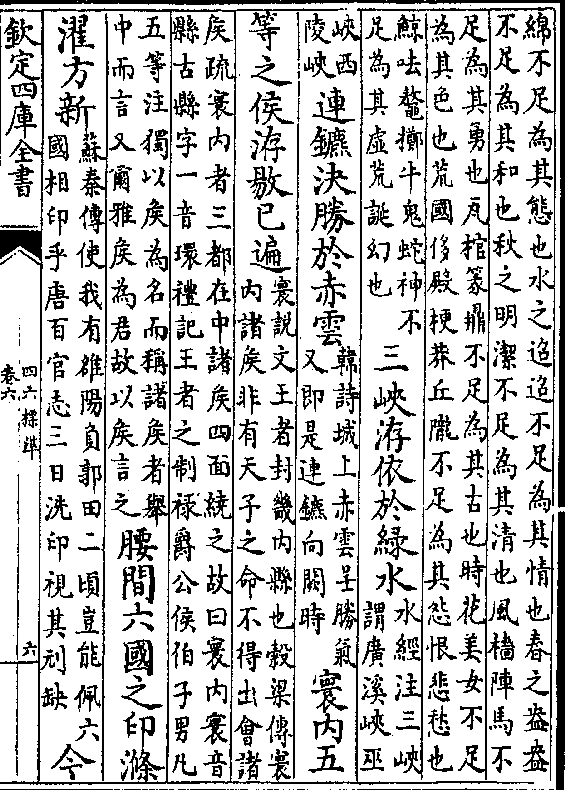 綿不足為其態也水之迢迢不足為其情也春之盎盎
不足為其和也秋之明潔不足為其清也風檣陣馬不
足為其勇也瓦棺篆鼎不足為其古也時花美女不足
為其色也荒國侈殿梗莽丘隴不足為其怨恨悲愁也
鯨呿鼇擲牛鬼蛇神不
足為其虛荒誕幻也
三峽洊依於緑水
水經注三峽
謂廣溪峽巫
峽西
陵峽
連鑣決勝於赤雲
韓詩城上赤雲呈勝氣
又即是連鑣向闕時
寰内五
等之侯洊敭已遍
寰說文王者封畿内縣也榖梁傳寰
内諸矦非有天子之命不得出會諸
矦疏寰内者三都在中諸矦四面繞之故曰寰内寰音
縣古縣字一音環禮記王者之制禄爵公侯伯子男凡
五等注獨以矦為名而稱諸矦者舉
中而言又爾雅矦為君故以矦言之
腰間六國之印滌
濯方新
蘇秦傳使我有雒陽負郭田二頃豈能佩六
國相印乎唐百官志三日洗印視其刓缺
今
欽定四庫全書
四六標準
卷六
六